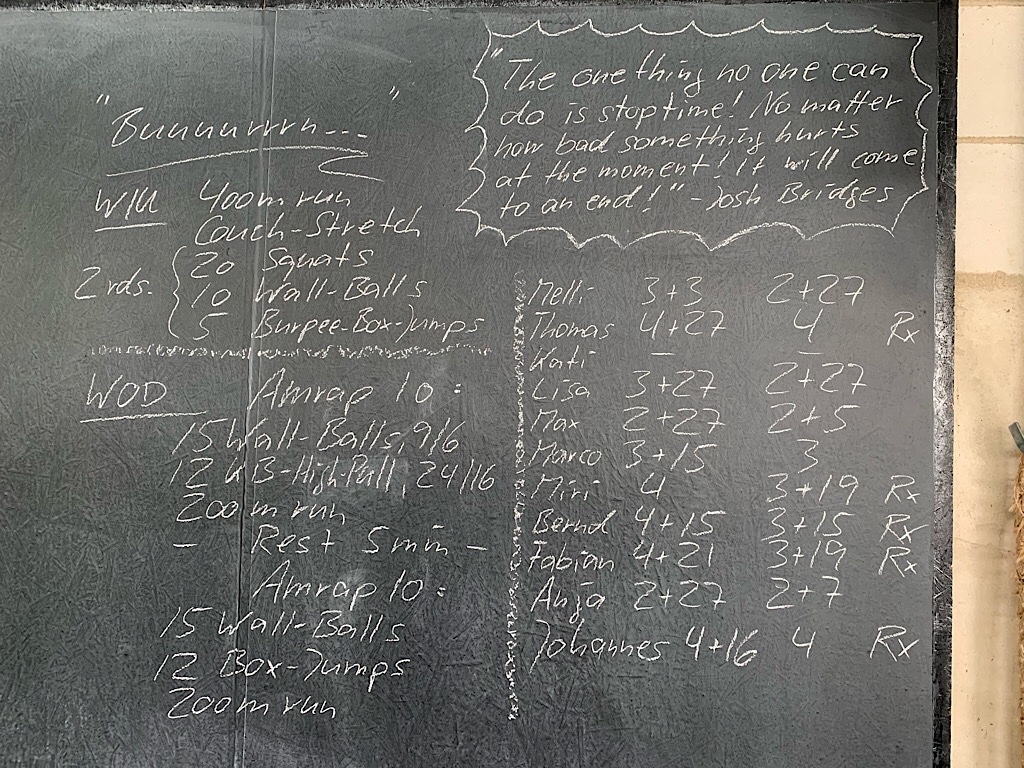 "Buuuurrrn---"
W/U 400m run
Couch-Stretch
2 rds. { 20 Squats
10 Wall-Balls
5 Burpee-Box-Jumps
WOD Amrap 10:
15 Wall-Balls, 9/6
12 KB-HighPull, 24/16
200m run
- Rest 5 min -
Amrap 10:
15 Wall-Balls
12 Box-Jumps
200m run
"The one thing no one can
do is stop time! No matter
how bad something hurts
at the moment! It will come
to an end!" - Josh Bridges
Melli 3+3 2+27
Thomas 4+27 4 Rx
Kati - -
Lisa 3+27 2+27
Max 2+27 2+5
Marco 3+15 3
Miri 4 3+19 Rx
Bernd 4+15 3+15 Rx
Fabian 4+21 3+19 Rx
Anja 2+27 2+7
Johannes 4+16 4 Rx